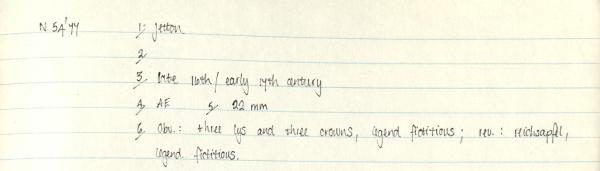 N 54'77 1. jetton
2.
3. late 16th / early 17th century
4. AE 5. 22 mm
6. Obv.: three lys and three crowns, legend fictitious; rev.: reichsapfel,
legend fictitious.